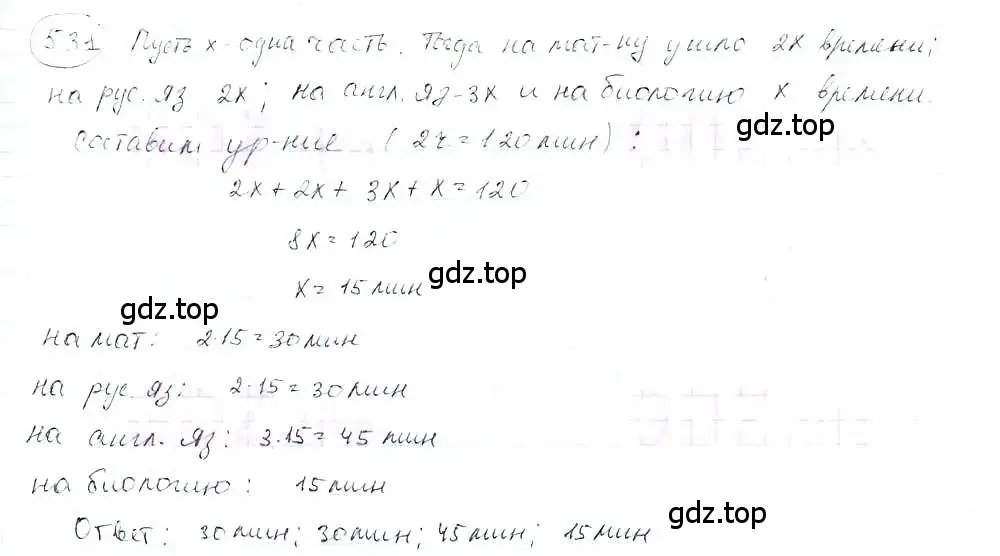 531 Пусть x - одна часть. Тогда на мат-ку ушло 2x времени;
на рус. яз 2x; на англ. яз - 3x и на биологию x времени.
gdz.top
Составим ур-ние (2ч = 120 мин):
2x + 2x + 3x + x = 120
8x = 120
gdz.top
x = 15 мин
gdz.top
на мат: 2·15 = 30 мин
на рус. яз: 2·15 = 30 мин
на англ. яз: 3·15 = 45 мин
gdz.top
на биологию: 15 мин
gdz.top
Ответ: 30 мин; 30 мин; 45 мин; 15 мин